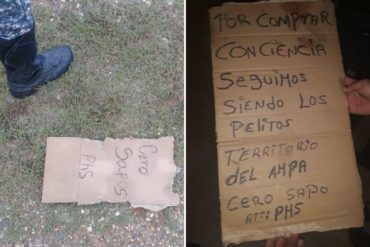 Cero
SapoS
PhS
POR COMPRAR
CONCIENCIA
SEGUIMOS
SIENDO LOS
PELITOS
TERRITORIO
DEL AMPA
CERO SAPO
ATT: PHS